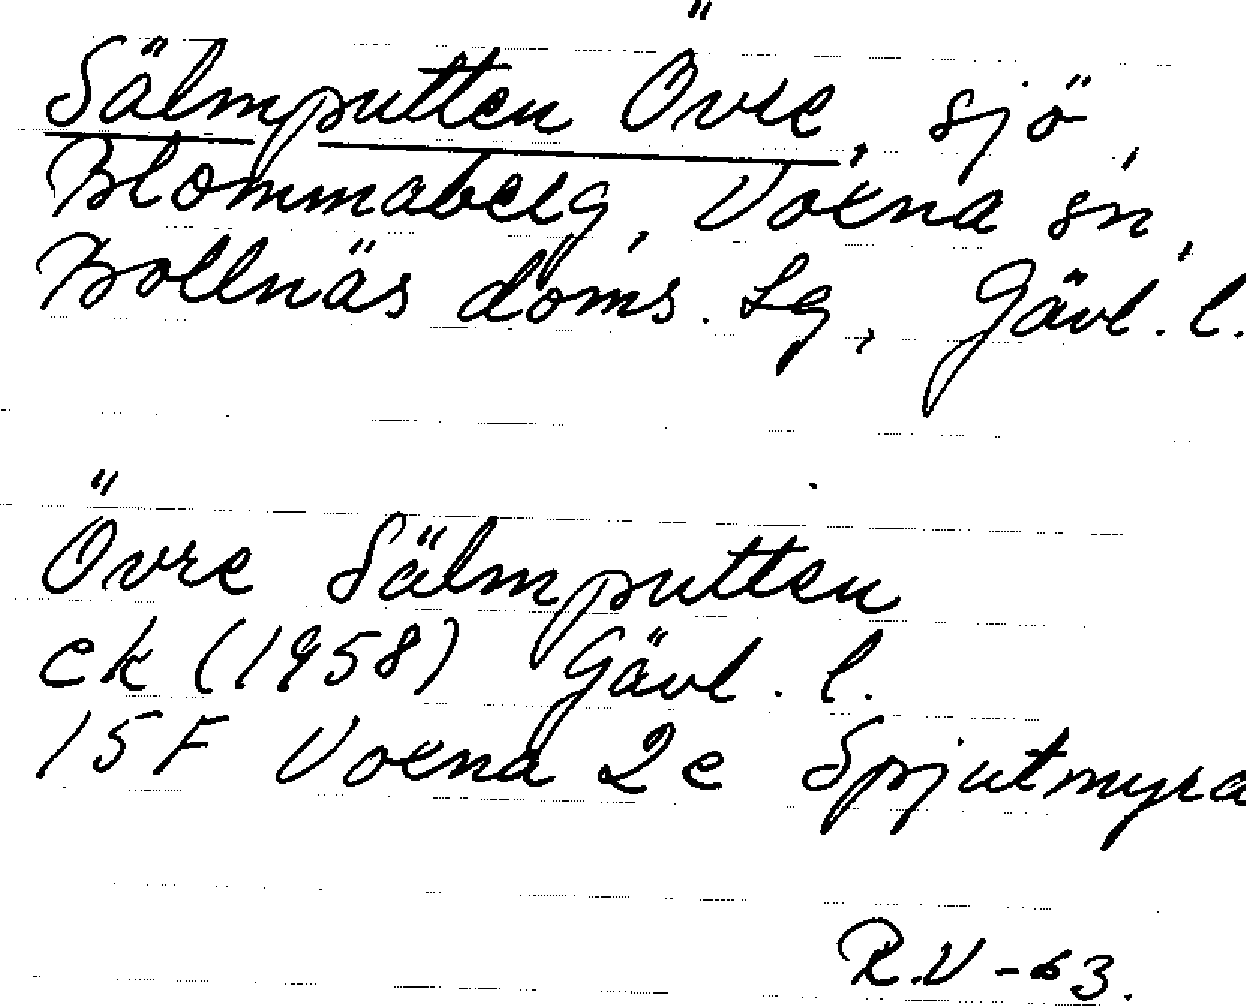 Sälmputten Övre, sjö,
Blommaberg, Voxna sn,
Bollnäs doms. lg, Gävl. l.
Övre Sälmputten
ek (1958) Gävl. l.
15F Voxna 2e Spjutmyra
R.V -63.